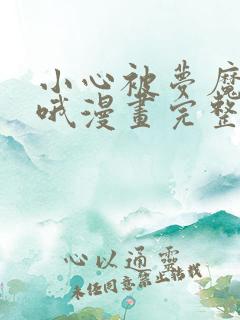 小心被夢魔
哦漫畫完整
心以通靈
未任同意禁止轉載